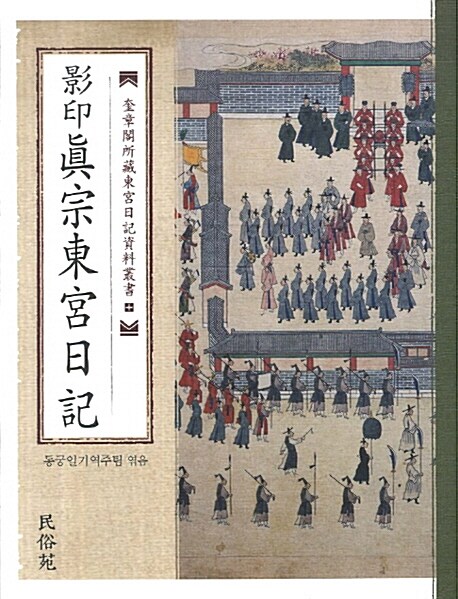 影印 眞宗東宮日記
奎章閣所藏東宮日記資料叢書 十
동궁일기역주팀 엮음
民俗苑